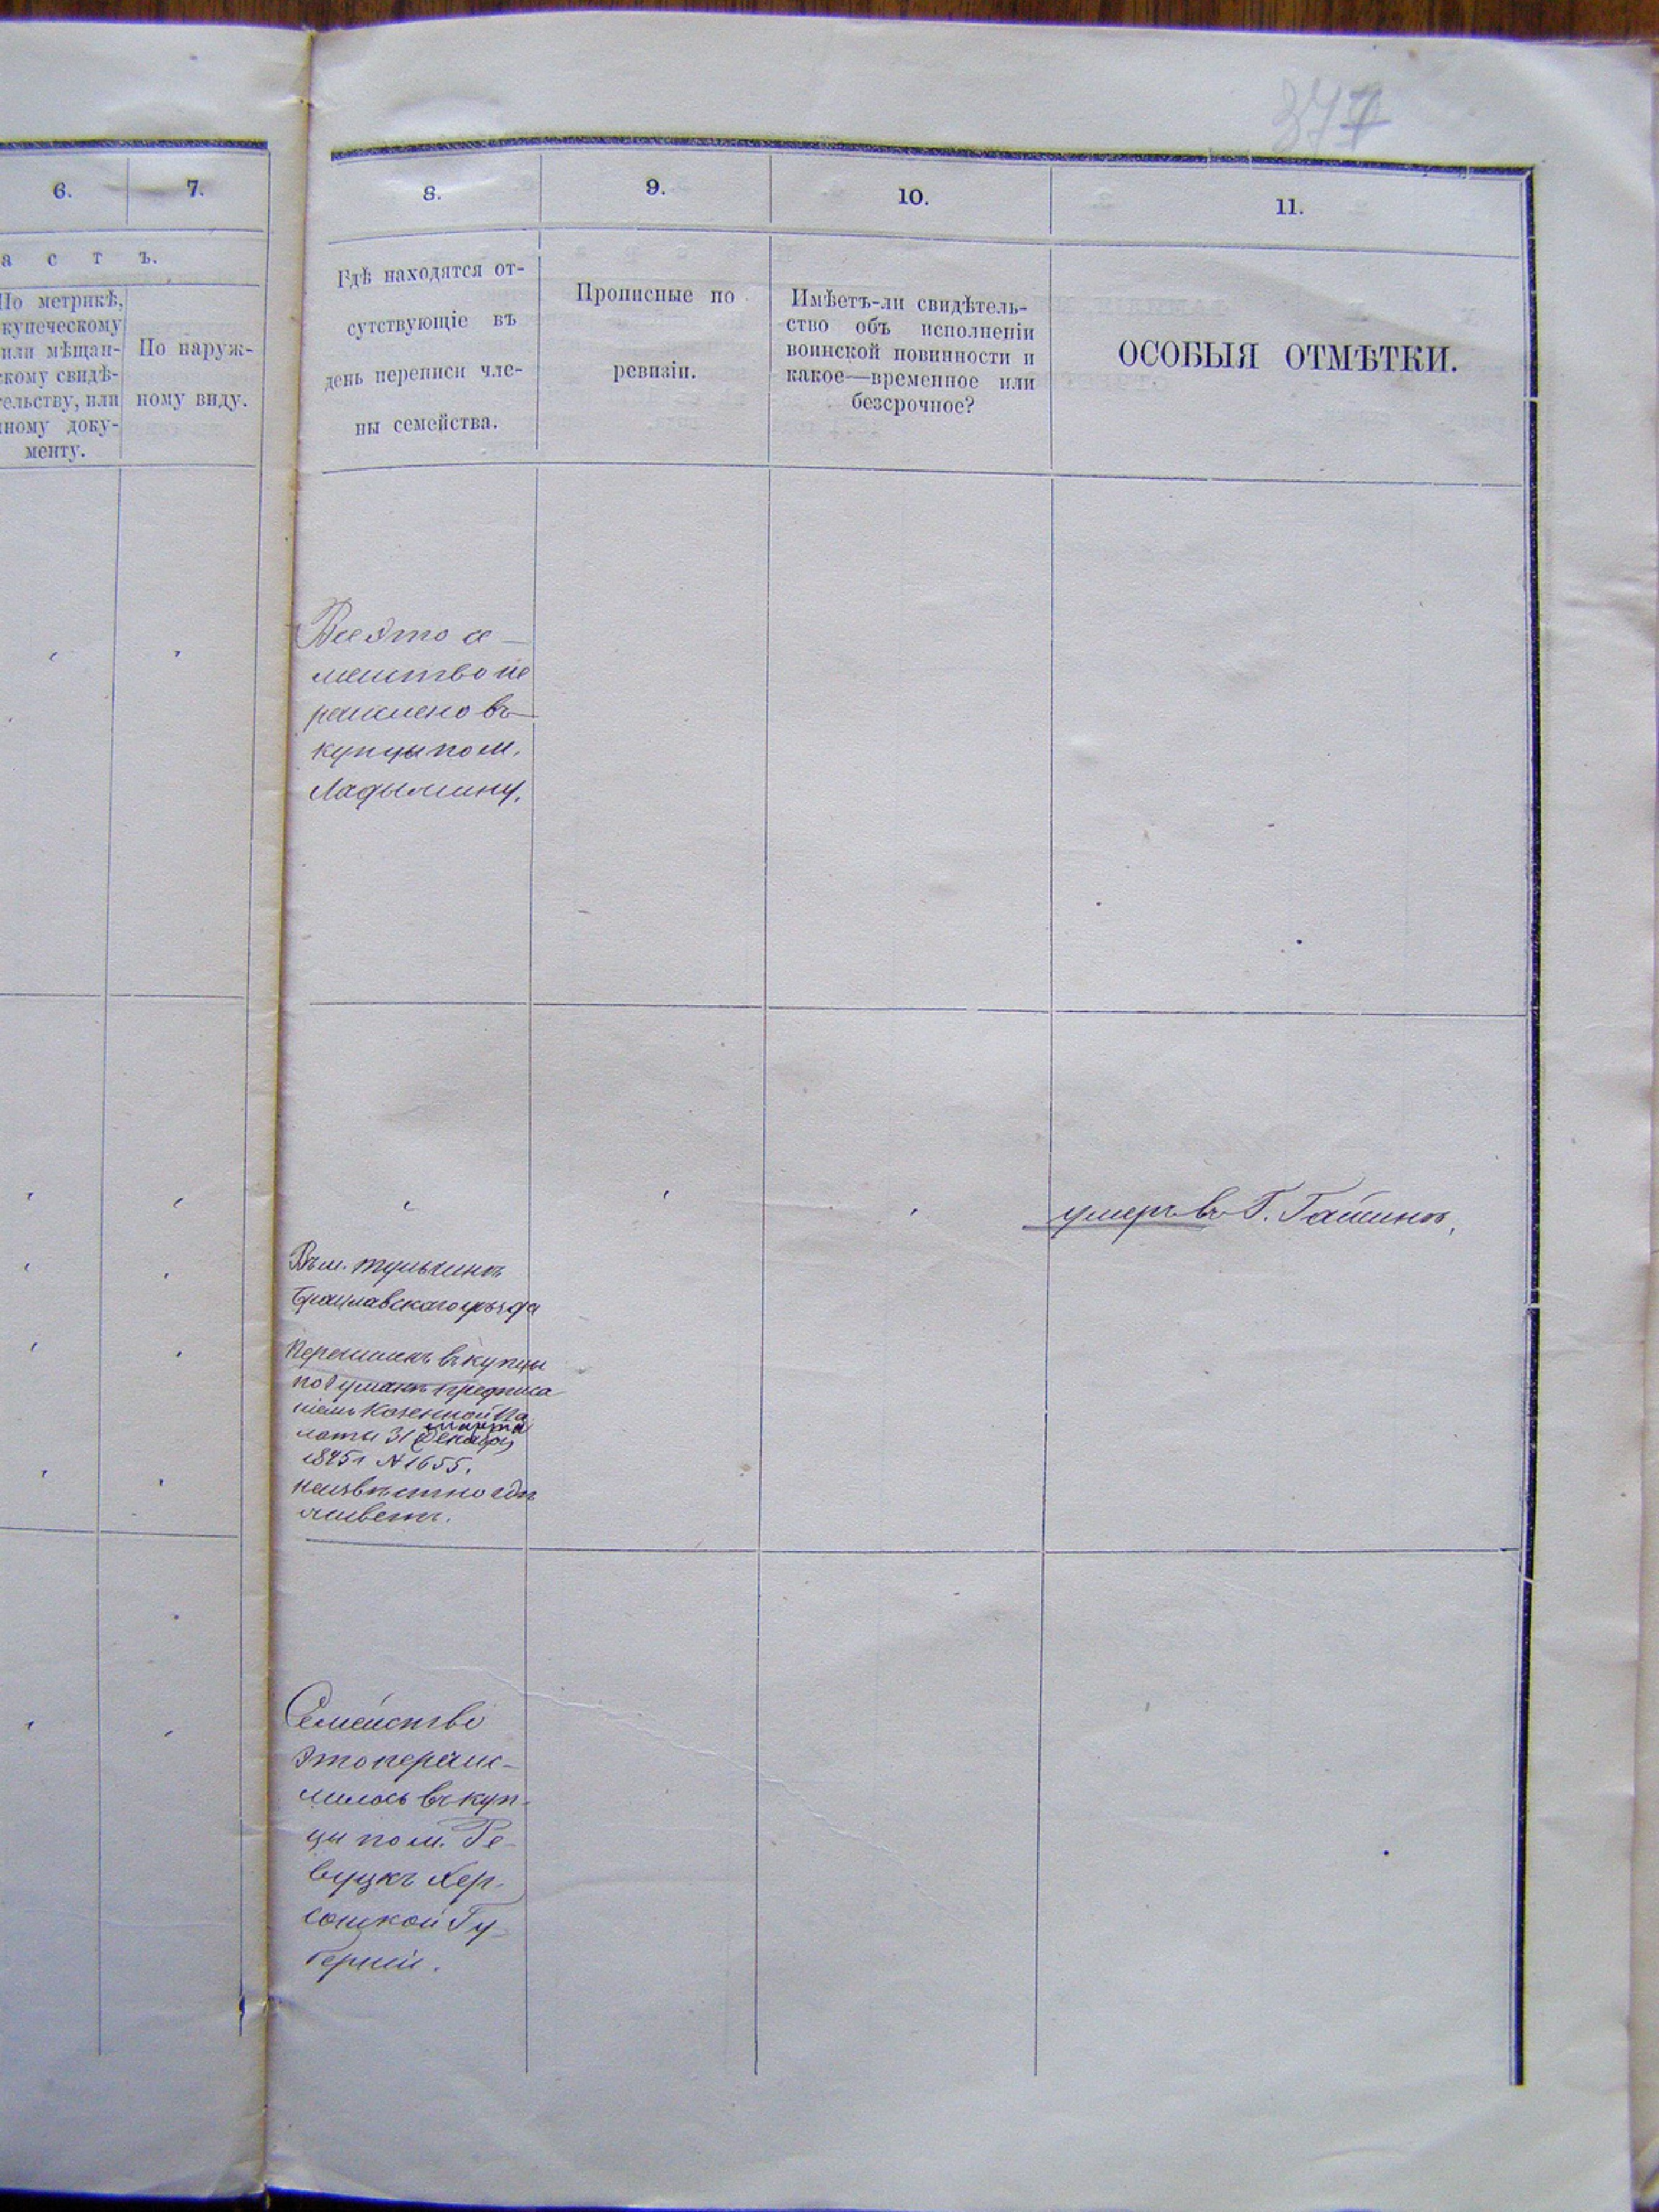 6.
7.
а с т ъ.
По метрикѣ,
купеческому
или мѣщан-
скому свидѣ-
тельству, или
иному доку-
менту.
По наруж-
ному виду.
8.
9.
10.
11.
Гдѣ находятся от-
сутствующіе въ
день переписи чле-
ны семейства.
Прописные по
ревизіи.
Имѣетъ-ли свидѣтель-
ство объ исполненіи
воинской повинности и
какое—временное или
безсрочное?
ОСОБЫЯ ОТМѢТКИ.
Все это се-
мейство пе
речислено въ
купцы по м.
Ладыжину.
умеръ въ Г.
Въ м. Тульчинѣ
Брацлавскаго уѣзда
Перечисленъ въ купцы
по Г Умани предписа
ніемъ Казенной Па
латы 31 марта
N 1655.
неизвѣстно гдѣ
живетъ.
Семейство
это перечис-
лилось въ куп-
цы по м. Ре-
вуцкъ Хер-
сонской Гу-
берніи.